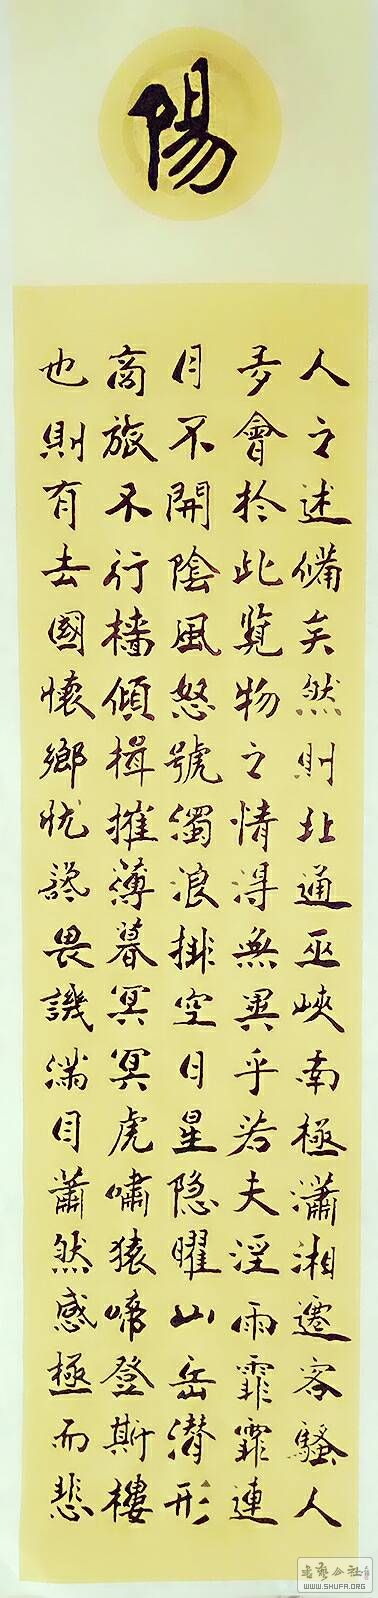 陽
人之述備矣然則北通巫峽南極瀟湘遷客騷人
多會於此覽物之情得無異乎若夫淫雨霏霏連
月不開陰風怒號濁浪排空日星隐曜山岳潜形
商旅不行檣傾楫摧薄暮冥冥虎嘯猿啼登斯樓
也則有去國懷鄉忧讒畏譏滿目蕭然感極而悲
WWW.SHUFA.ORG